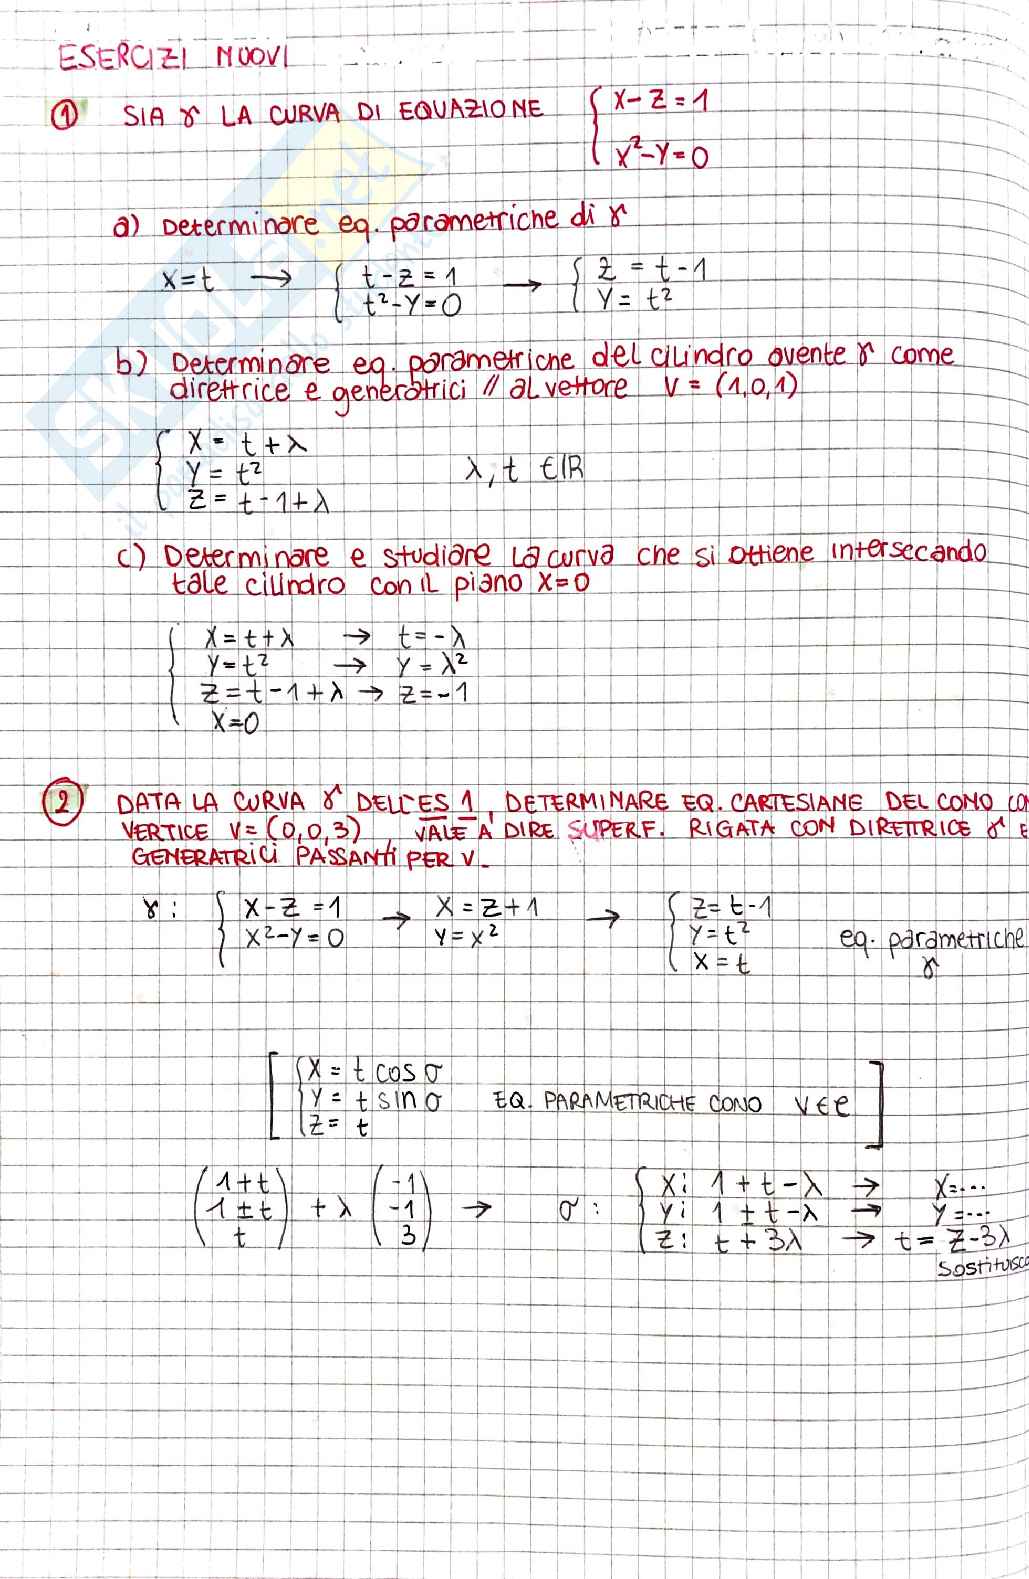 ESERCIZI NUOVI
① SIA γ LA CURVA DI EQUAZIONE { X-Z=1
X²-Y=0
a) Determinare eq. parametriche di γ
X=t → { t-z=1 → { Z = t-1
t²-Y=0 Y= t²
b) Determinare eq. parametriche del cilindro avente γ come
direttrice e generatrici // al vettore V = (1,0,1)
{ X = t+λ
Y = t² λ, t ∈ℝ
Z = t-1+λ
c) Determinare e studiare la curva che si ottiene intersecando
tale cilindro con il piano X=0
{ X=t+λ → t=-λ
Y=t² → Y=λ²
Z=t-1+λ → Z=-1
X=0
② DATA LA CURVA γ DELL'ES 1, DETERMINARE EQ. CARTESIANE DEL CONO CON
VERTICE V=(0,0,3), VALE A DIRE SUPERF. RIGATA CON DIRETTRICE γ E
GENERATRICI PASSANTI PER V.
γ: { X-Z=1 → X=Z+1 → { Z=t-1
X²-Y=0 Y=X² Y=t² eq. parametriche
X=t γ
[ { X = t cos σ
Y = t sin σ EQ. PARAMETRICHE CONO V∈e ]
Z = t
(1+t) + λ (-1) → σ: { X: 1+t-λ → X=...
(1±t) (-1) Y: 1±t-λ → Y=...
(t) (3) Z: t+3λ → t=Z-3λ
Sostituisco
SKUOLA.net